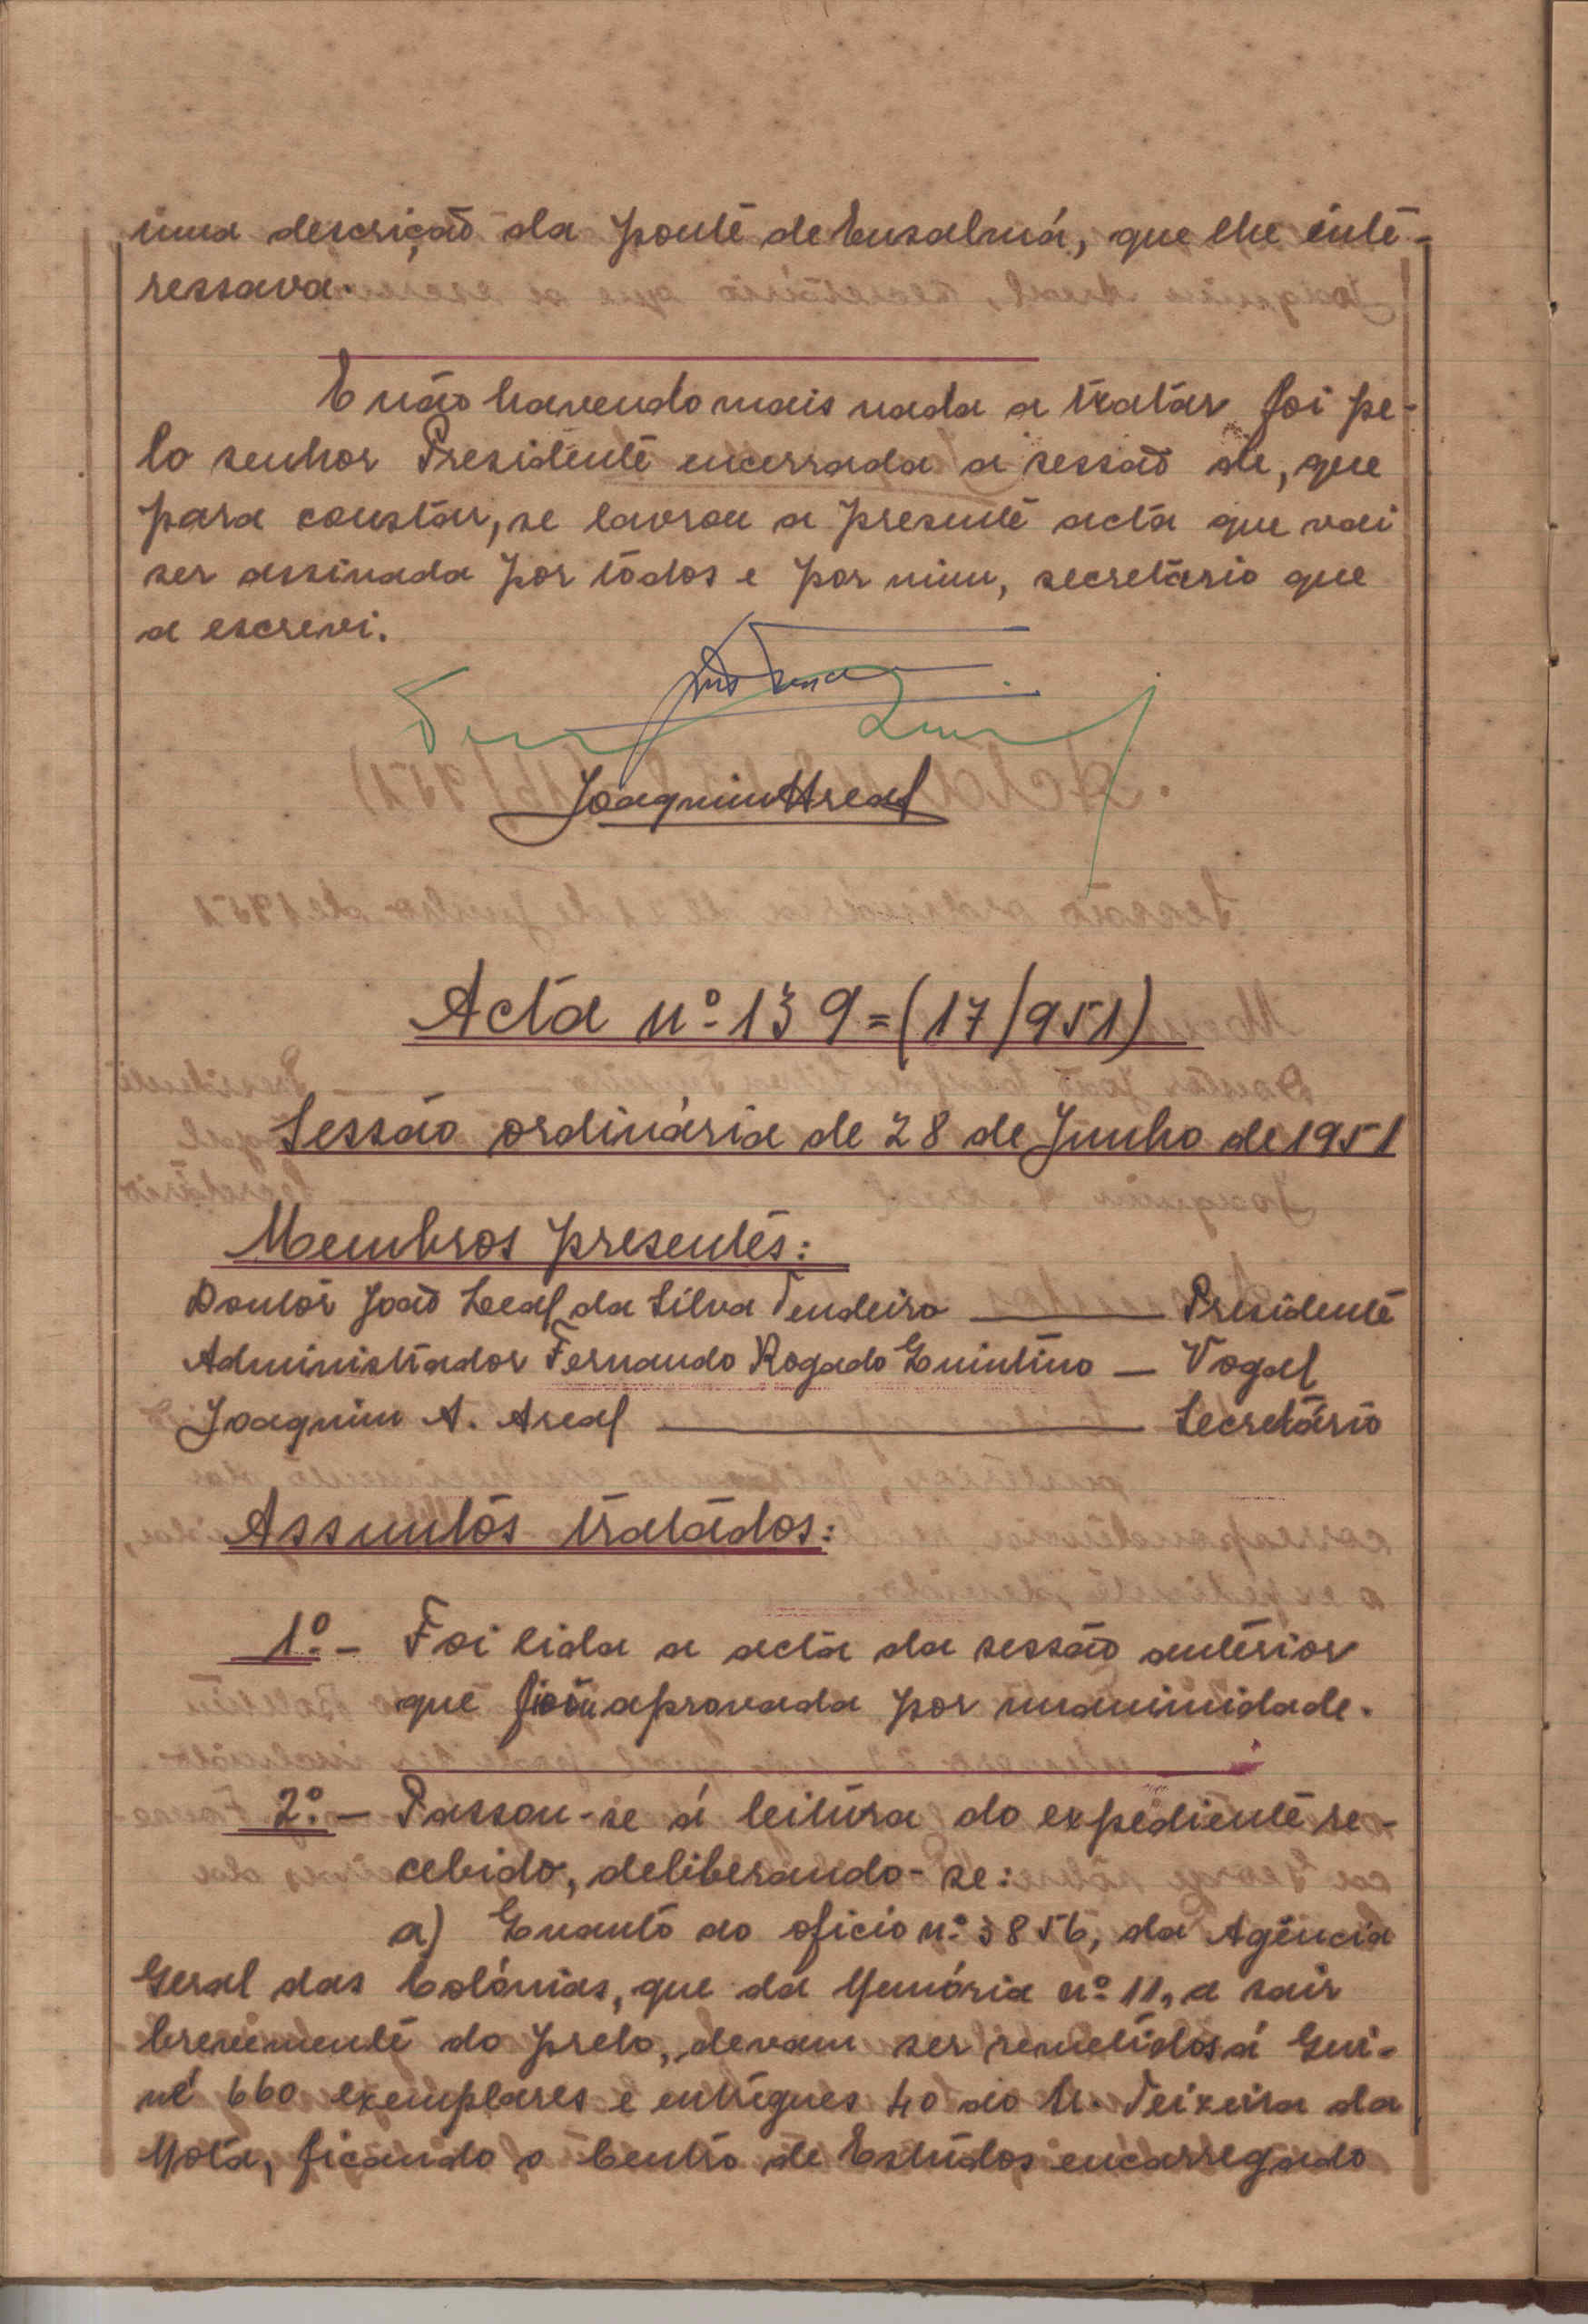 uma descrição da ponte de Ensalmá, que lhe inte-
ressava.
E não havendo mais nada a tratar foi pe-
lo senhor Presidente encerrada a sessão de, que
para constar, se lavrou a presente acta que vai
ser assinada por todos e por mim, secretário que
a escrevi.
Joaquim Areal
Acta nº 139=(17/951)
Sessão ordinária de 28 de Junho de 1951
Membros presentes:
Doutor João Leal da Silva Tendeiro — Presidente
Administrador Fernando Rogado Quintino — Vogal
Joaquim A. Areal — Secretário
Assuntos tratados:
1º.- Foi lida a acta da sessão anterior
que aprovada por unanimidade.
2º.- Passou-se á leitura do expediente re-
cebido, deliberando-se:
a) Quanto ao oficio nº 3856, da Agência
Geral das Colónias, que da Memória nº 11, a sair
brevemente do prelo, devam ser remetidos á Gui-
né 660 exemplares e entregues 40 ao Teixeira da
Mota, ficando o Centro de Estudos encarregado